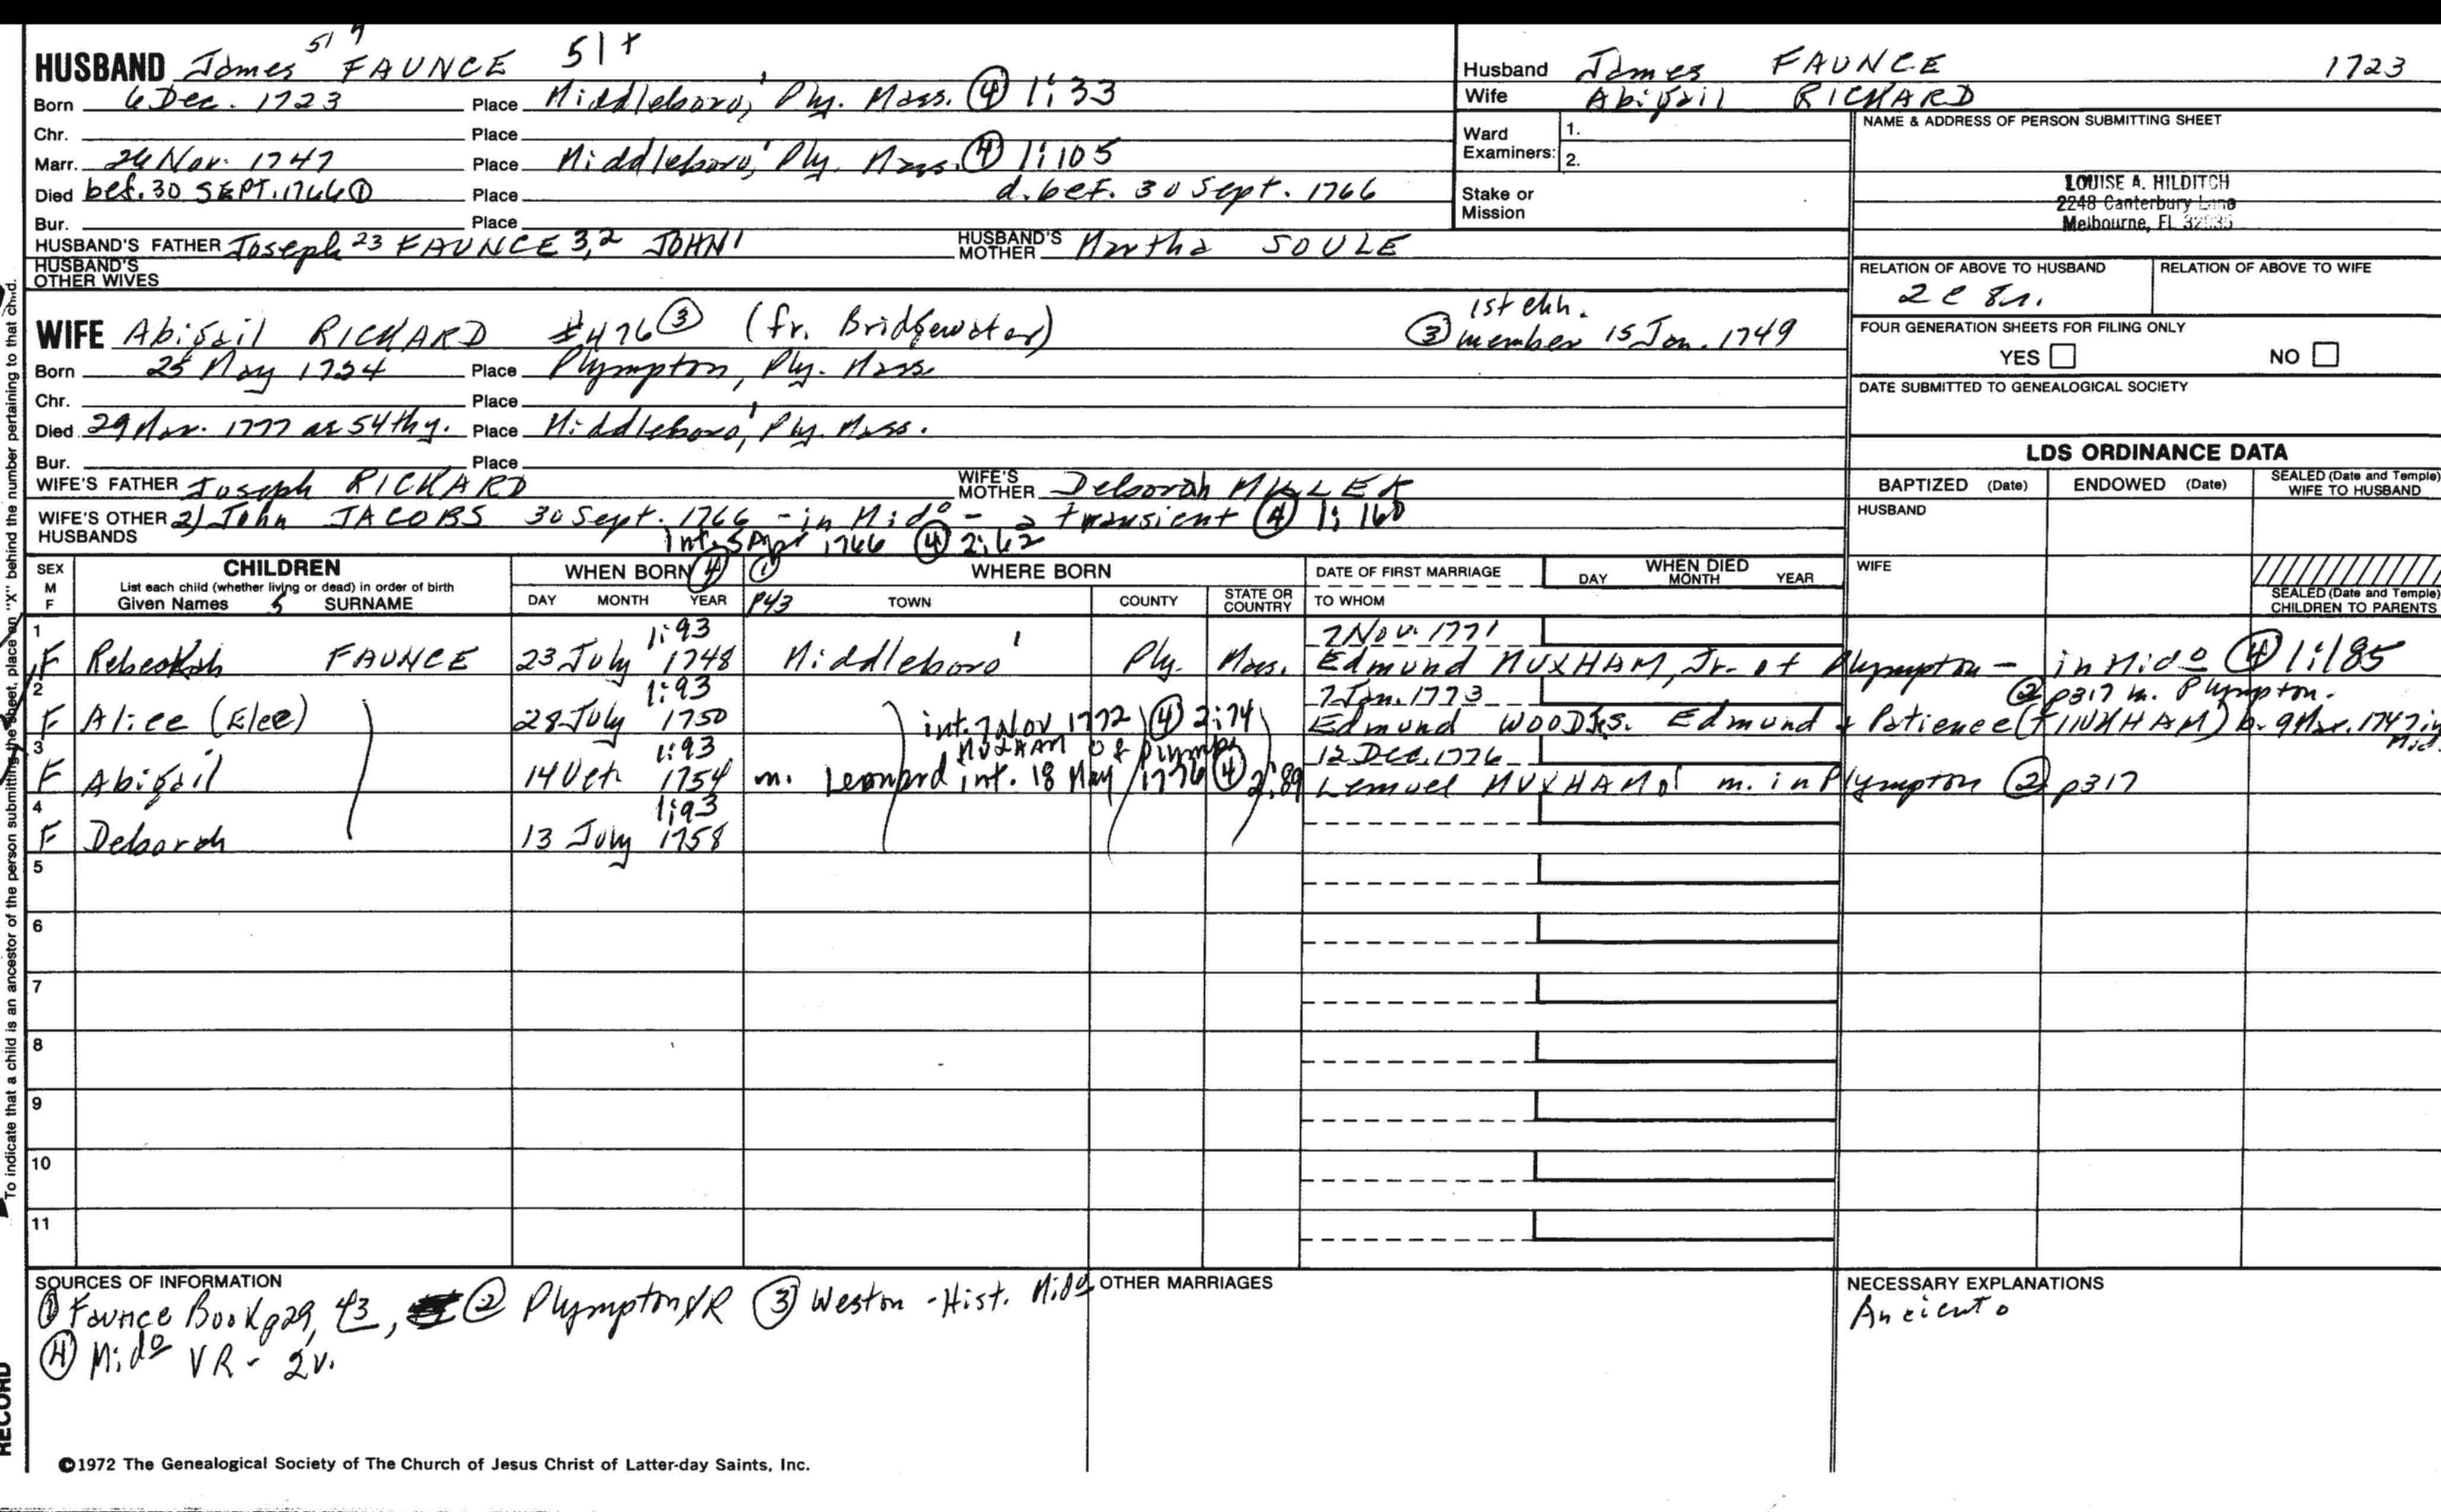 HUSBAND James FAUNCE 51 +
51 9
Born 6 Dec. 1723 Place Middleboro,' Ply. Mass. ④ 1:33
Chr. Place
Marr. 26 Nov. 1747 Place Middleboro,' Ply. Mass. ④ 1:105
Died bef. 30 SEPT. 1766 ① Place d. bef. 30 Sept. 1766
Bur. Place
HUSBAND'S FATHER Joseph 23 FAUNCE 3,2 JOHN 1 HUSBAND'S MOTHER Martha SOULE
HUSBAND'S OTHER WIVES
WIFE Abigail RICKARD #476 ③ (fr. Bridgewater) 1st chh.
③ member 15 Jan. 1749
Born 25 May 1724 Place Plympton, Ply. Mass
Chr. Place
Died 29 Mar. 1777 ae 54th y. Place Middleboro,' Ply. Mass.
Bur. Place
WIFE'S FATHER Joseph RICKARD WIFE'S MOTHER Deborah MILLER
WIFE'S OTHER HUSBANDS 2) John JACOBS 30 Sept. 1766 - in Mido - a transient ④ 1:160
Int. 5 Apr 1766 ④ 2:62
Husband James FAUNCE 1723
Wife Abigail RICKARD
Ward Examiners: 1.
2.
Stake or Mission
NAME & ADDRESS OF PERSON SUBMITTING SHEET
LOUISE A. HILDITCH
2248 Canterbury Lane
Melbourne, FL
RELATION OF ABOVE TO HUSBAND RELATION OF ABOVE TO WIFE
FOUR GENERATION SHEETS FOR FILING ONLY
YES NO
DATE SUBMITTED TO GENEALOGICAL SOCIETY
LDS ORDINANCE DATA
BAPTIZED (Date) ENDOWED (Date) SEALED (Date and Temple) WIFE TO HUSBAND
HUSBAND
WIFE
SEALED (Date and Temple) CHILDREN TO PARENTS
SEX M F
CHILDREN
List each child (whether living or dead) in order of birth
Given Names 5 SURNAME
WHEN BORN ④ ①
DAY MONTH YEAR P43
WHERE BORN
TOWN COUNTY STATE OR COUNTRY
DATE OF FIRST MARRIAGE
TO WHOM
WHEN DIED
DAY MONTH YEAR
1 1:93 7 Nov. 1771
F Rebeckah FAUNCE 23 July 1748 Middleboro' Ply. Mass. Edmund MUXHAM, Jr. of Plympton - in Mido ④ 1:185
2 1:93 7 Jan. 1773 ② p317 m. Plympton.
F Alice (Elce) 28 July 1750 int. 7 Nov 1772 ④ 2:74 Edmund WOOD s. Edmund + Patience (MUXHAM) b. 9 Mar. 1747 in Mid.
3 1:93 MUXHAM of Plymp 12 Dec. 1776
F Abigail 14 Oct. 1754 m. Leonard int. 18 May 1776 ④ 2:89 Lemuel MUXHAM m. in Plympton ② p317
4 1:93
F Deborah 13 July 1758
5
6
7
8
9
10
11
SOURCES OF INFORMATION
① Faunce Book p29, 43, ② Plympton VR ③ Weston - Hist. Mido
④ Mido VR - 2v.
OTHER MARRIAGES
NECESSARY EXPLANATIONS
To indicate that a child is an ancestor of the person submitting the sheet, place an "X" behind the number pertaining to that child.
RECORD
©1972 The Genealogical Society of The Church of Jesus Christ of Latter-day Saints, Inc.